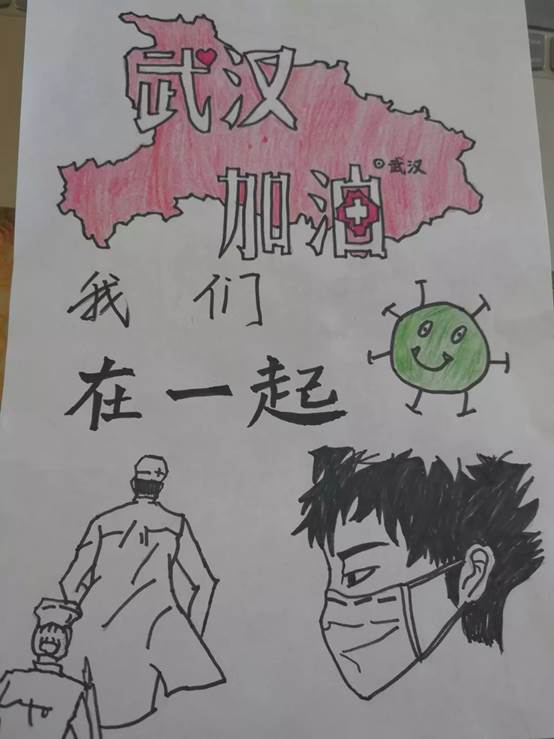 武汉
加油
武汉
我们
在一起